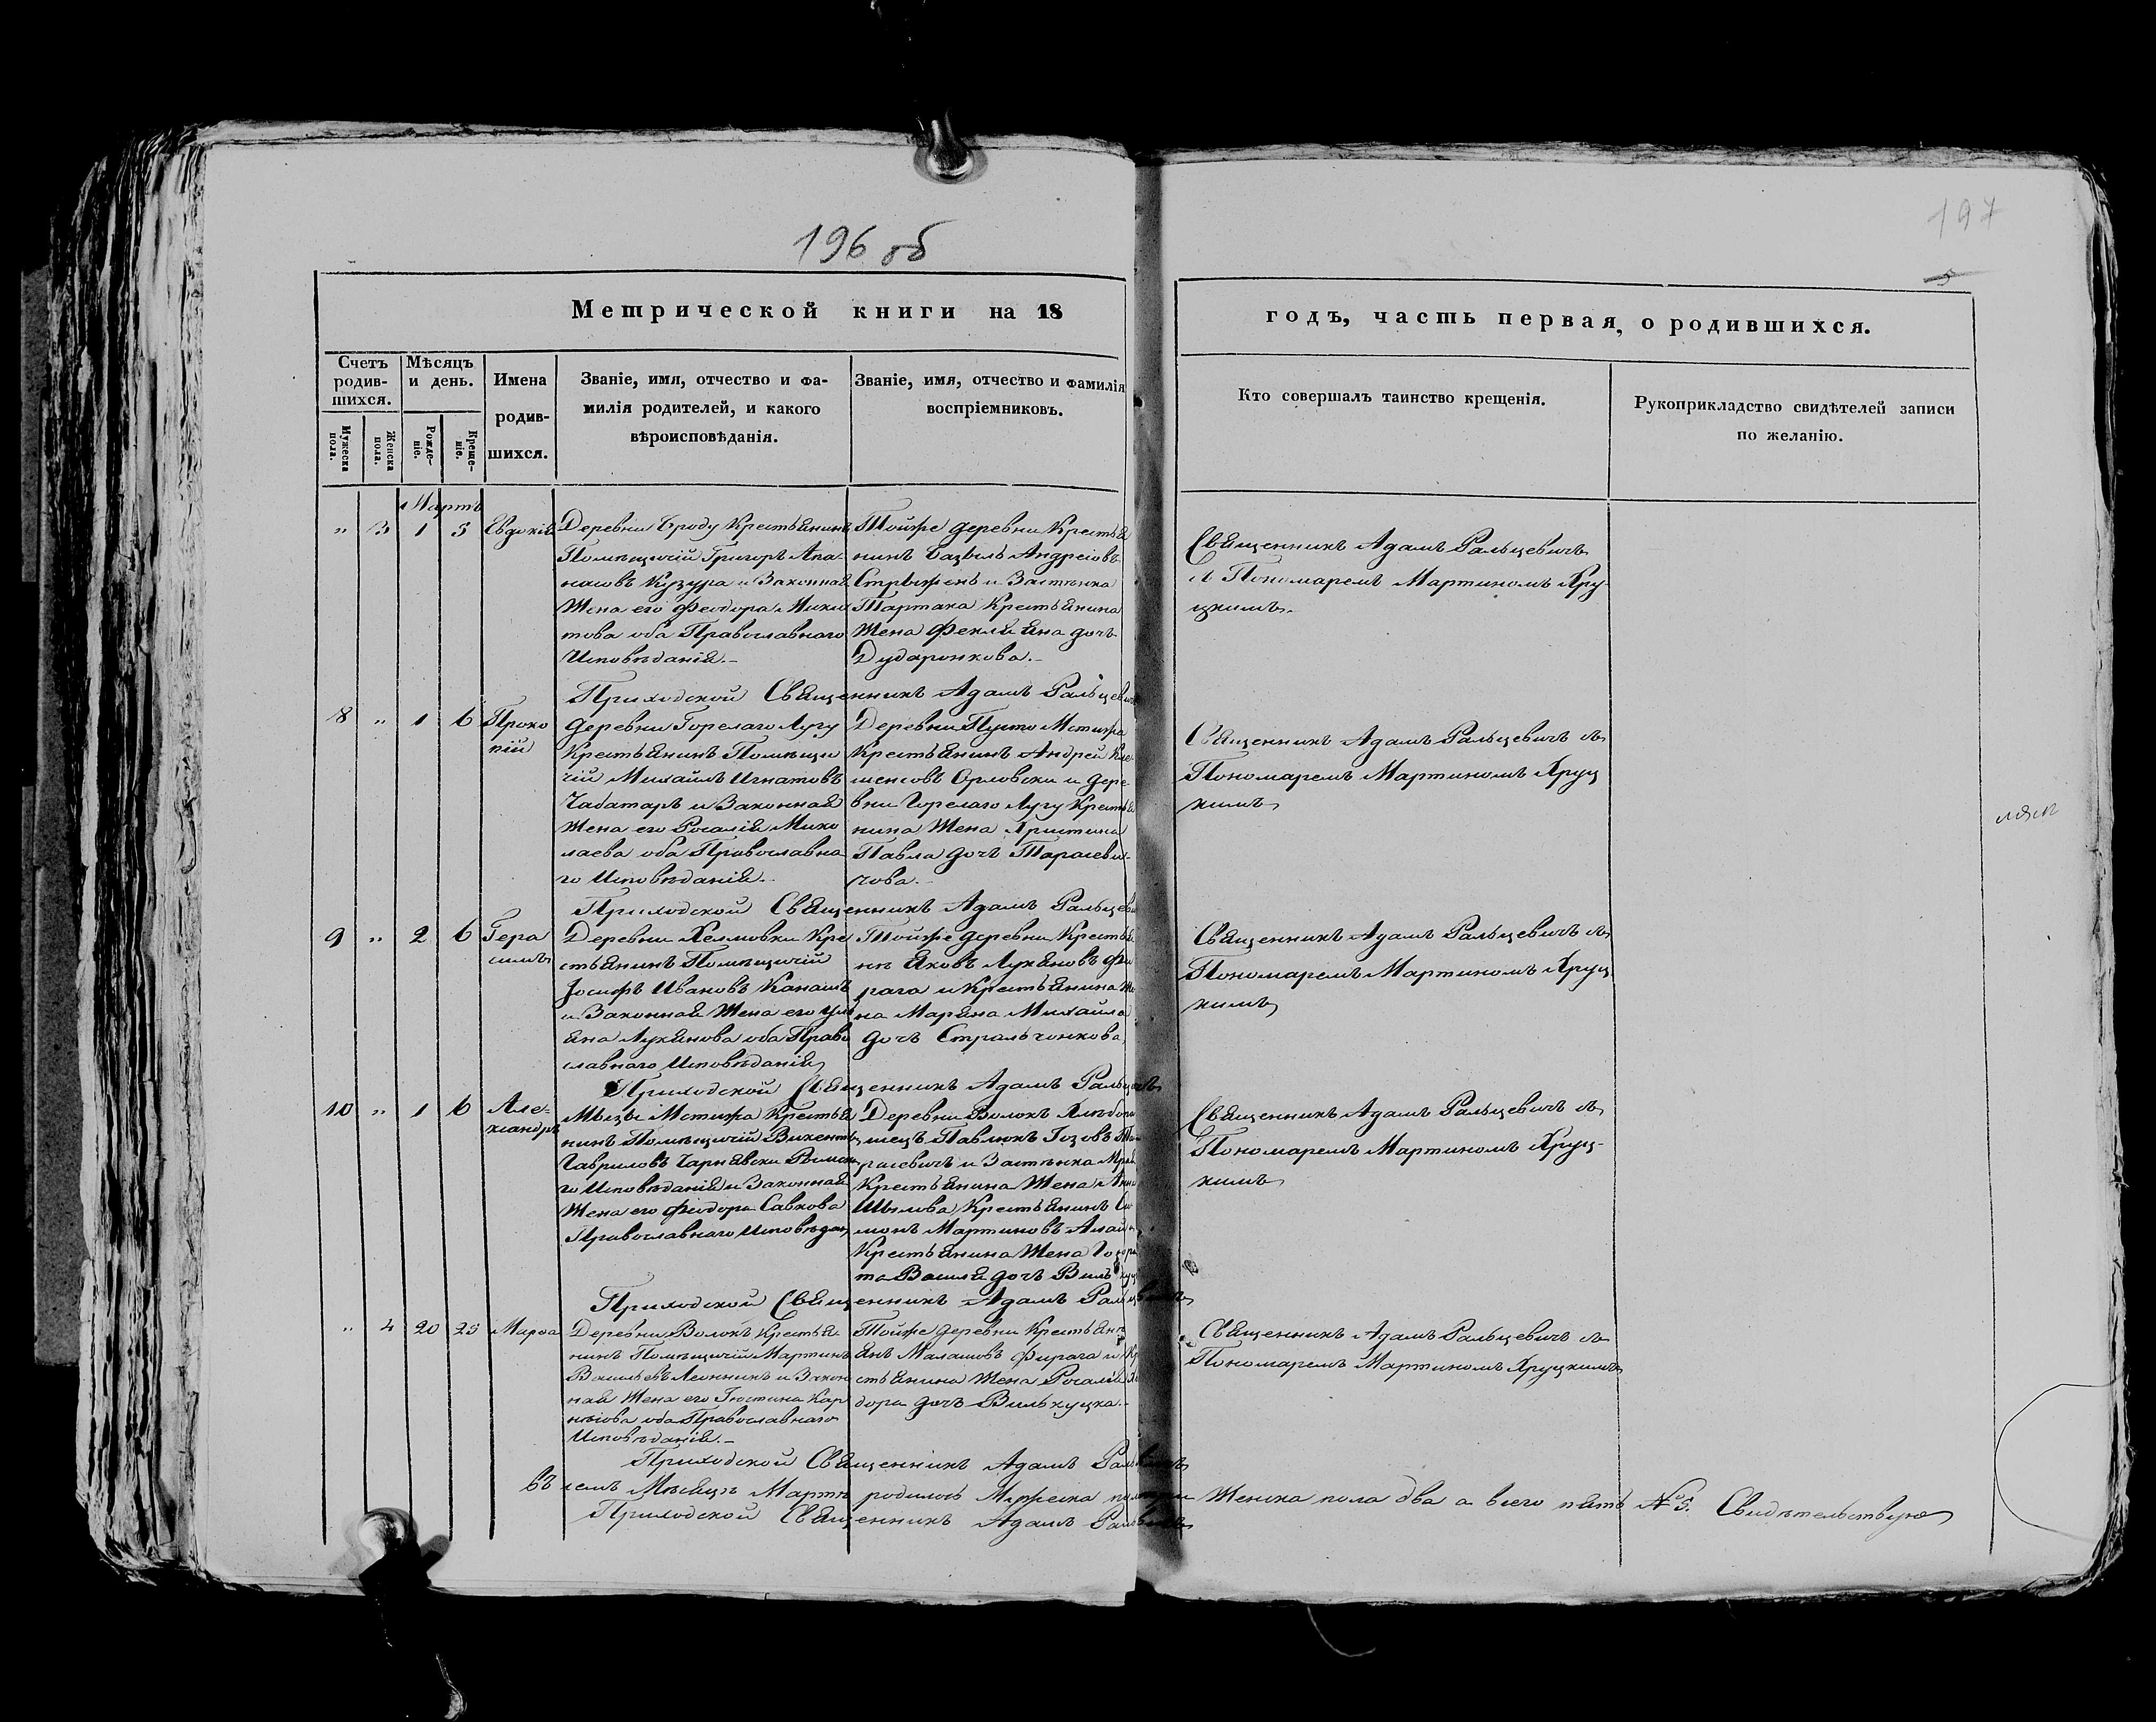 196 об
197
5
Метрической книги на 18
годъ, часть первая, о родившихся.
Счетъ родив-
шихся.
Мѣсяцъ
и день.
Имена
родив-
шихся.
Званіе, имя, отчество и фа-
милія родителей, и какого
вѣроисповѣданія.
Званіе, имя, отчество и фамилія
воспріемниковъ.
Кто совершалъ таинство крещенія.
Рукоприкладство свидѣтелей записи
по желанію.
Мужеска
пола.
Женска
пола.
Рожде-
ніе.
Креще-
ніе.
Мартъ
" 3 1 5 Евдокія
Деревни Броду Крестьянинъ
Помѣщичій Григоръ Апа-
насовъ Кузура и Законная
Жена его Феодора Мики
това оба Православнаго
Исповѣданія.-
Тойже деревни Крестья
нинъ Базыль Андреіовъ
Стрыжень и Застѣнка
Тартака Крестьянина
Жена Фекля Яна дочь
Дударонкова.-
Священникъ АдамъРальцевичъ
съ Пономаремъ Мартиномъ Хру-
цкимъ.
Приходской Священникъ Адамъ
8 " 1 6 Проко
пій
деревни Горелаго Лугу
Крестьянинъ Помѣщи
чій Михайлъ Игнатовъ
Чабатаръ и Законная
Жена его Росалія Мико
лаева оба Православна
го Исповѣданія.-
Деревни Пусто Мстижа
Крестьянинъ Андрей
менсовъ Орловски и дере
вни Горелаго Лугу Крестья
нина Жена Христина
Павла дочь Тарасеви-
чова.-
Священникъ Адамъ Ральцевичъ съ
Пономаремъ Мартиномъ Хруц
кимъ
Приходской Священникъ Адамъ
9 " 2 6 Гера
симъ
Деревни Хелмовки Кре
стьянинъ Помѣщичій
Іосифъ Ивановъ Канашъ
и Законная Жена его Ули
яна Лукянова оба Право
славнаго Исповѣданія
Тойже деревни
Яковъ Лукяновъ Фи
рага и Крестьянина Же
на Маряна Михаила
дочь Стральчонкова
Священникъ Адамъ Ральцевичъ съ
Пономаремъ Мартиномъ Хруц
кимъ
Приходской Священникъ Адамъ
10 " 1 6 Але-
ксандръ
Мызы Мстижа Крестья
нинъ Помѣщичій Викентій
Гавриловъ Чарнявски
го Исповѣданія и Законная
Жена его Феодора Савкова
Православнаго
Деревни Волокъ
Павлюкъ Іозовъ
расевичъ и Застѣнка
Крестьянина Жена
Крестьянинъ
монъ Мартиновъ
Крестьянина Жена
Василя дочь
Священникъ Адамъ Ральцевичъ съ
Пономаремъ Мартиномъ Хруц-
кимъ
Приходской Священникъ Адамъ
" 4 20 25 Марѳа
Деревни Волокъ Крестья
нинъ Помѣщичій Мартинъ
Васильевъ Леонникъ и Закон
ная Жена его Іюстина Кар
нѣіова оба Православнаго
Исповѣданія.-
Тойже деревни
Янъ Малашовъ Фирага и Кр
стьянина Жена Росалія
дора дочь Вилькуцка.-
Священникъ Адамъ Ральцевичъ съ
Пономаремъ Мартиномъ Хруцкимъ
Приходской Священникъ Адамъ
Въ семъ Мѣсяцѣ Мартѣ родилось Мужеска Женска пола два а всего пять № 5. Свидѣтельствую
Приходской Священникъ Адамъ